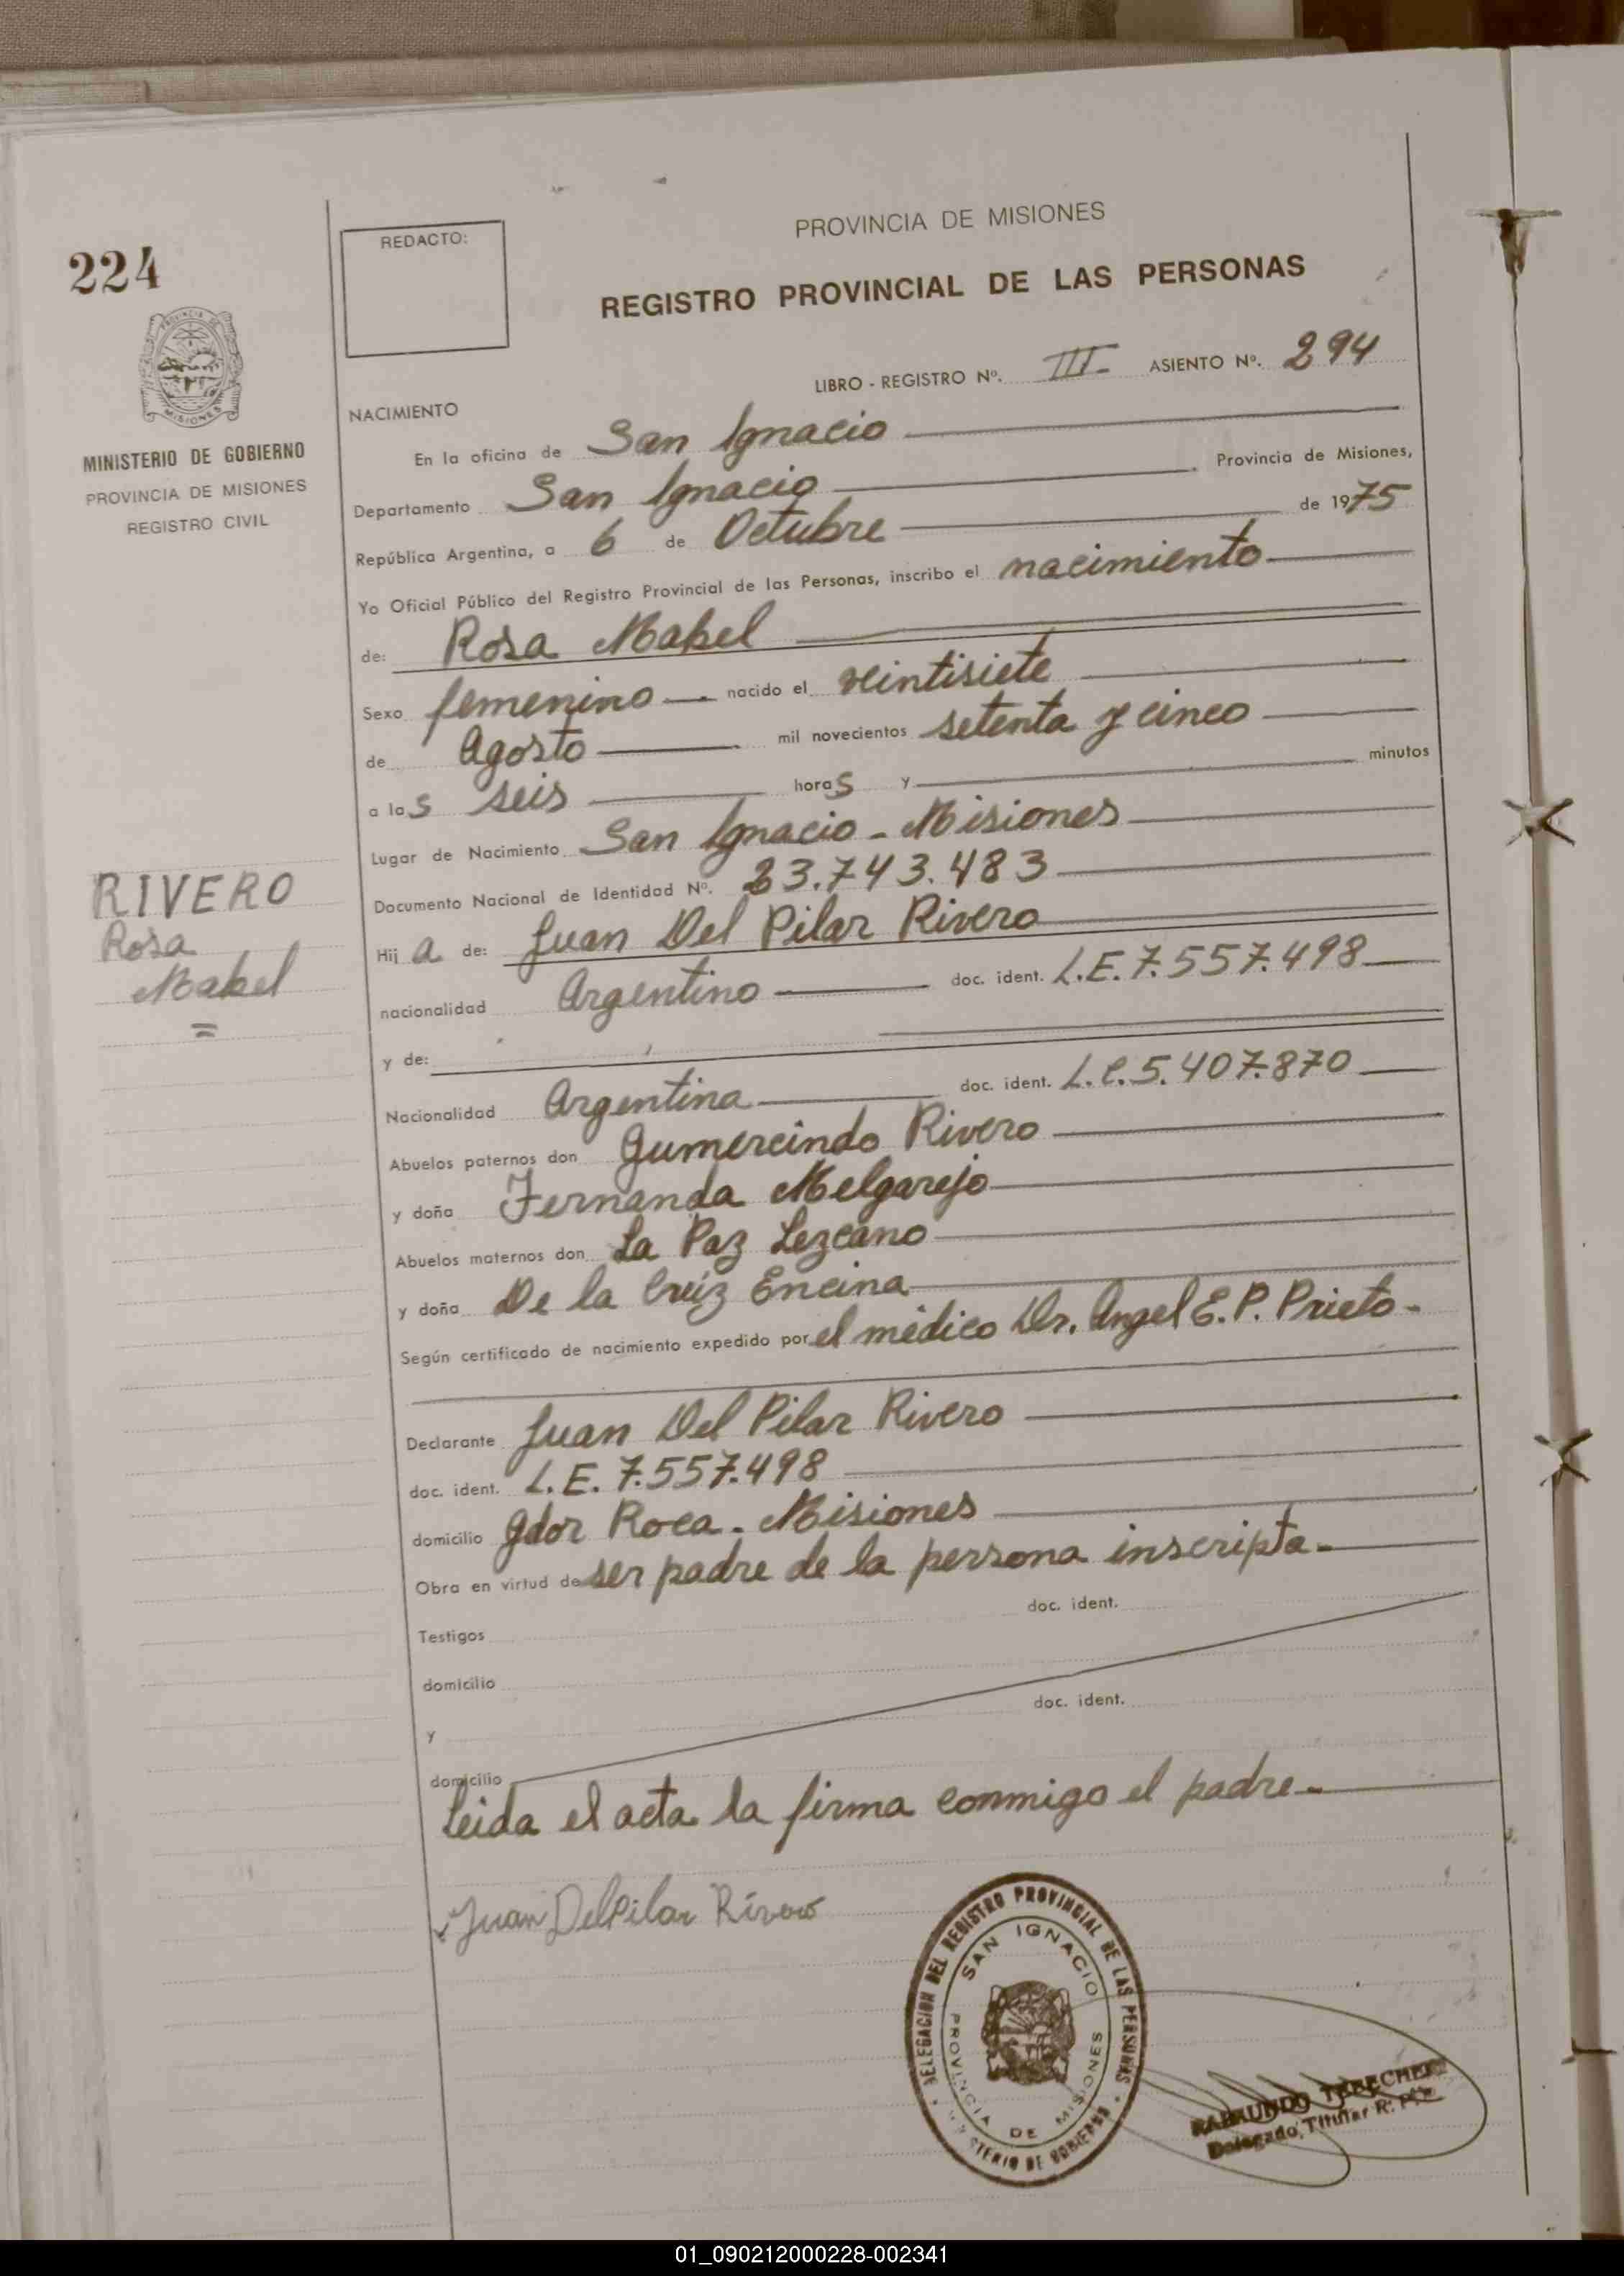 PROVINCIA DE MISIONES
REGISTRO PROVINCIAL DE LAS PERSONAS
224
REDACTO:
MINISTERIO DE GOBIERNO
PROVINCIA DE MISIONES
REGISTRO CIVIL
LIBRO - REGISTRO Nº. III- ASIENTO Nº. 294
NACIMIENTO
En la oficina de San Ignacio
Departamento San Ignacio Provincia de Misiones,
República Argentina, a 6 de Octubre de 1975
Yo Oficial Público del Registro Provincial de las Personas, inscribo el nacimiento
de: Rosa Mabel
Sexo femenino nacido el veintisiete
de Agosto mil novecientos setenta y cinco
a las seis horas y minutos
Lugar de Nacimiento San Ignacio - Misiones
Documento Nacional de Identidad Nº. 23.743.483
RIVERO
Rosa
Mabel
=
Hija de: Juan Del Pilar Rivero
nacionalidad Argentino doc. ident. L.E. 7.557.498
y de:
Nacionalidad Argentina doc. ident. L.C. 5.407.870
Abuelos paternos don Gumercindo Rivero
y doña Fernanda Melgarejo
Abuelos maternos don La Paz Lezcano
y doña De la Cruz Encina
Según certificado de nacimiento expedido por el médico Dr. Angel E. P. Prieto -
Declarante Juan Del Pilar Rivero
doc. ident. L.E. 7.557.498
domicilio Gdor Roca - Misiones
Obra en virtud de ser padre de la persona inscripta -
doc. ident.
Testigos
domicilio
doc. ident.
y
domicilio
Leida el acta la firma conmigo el padre -
Juan Del Pilar Rivero
DELEGACION DEL REGISTRO PROVINCIAL DE LAS PERSONAS
SAN IGNACIO
PROVINCIA DE MISIONES
MINISTERIO DE GOBIERNO
RAIMUNDO
Delegado Titular R. P.
01_090212000228-002341